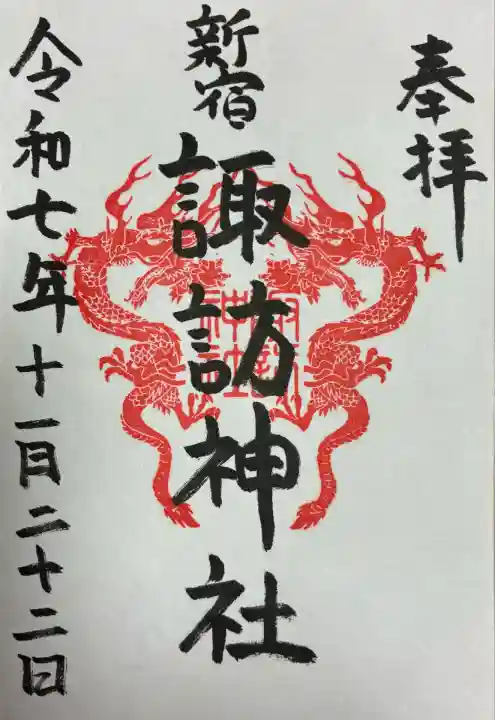 奉拝
新宿
諏訪神社
令和七年十一月二十二日